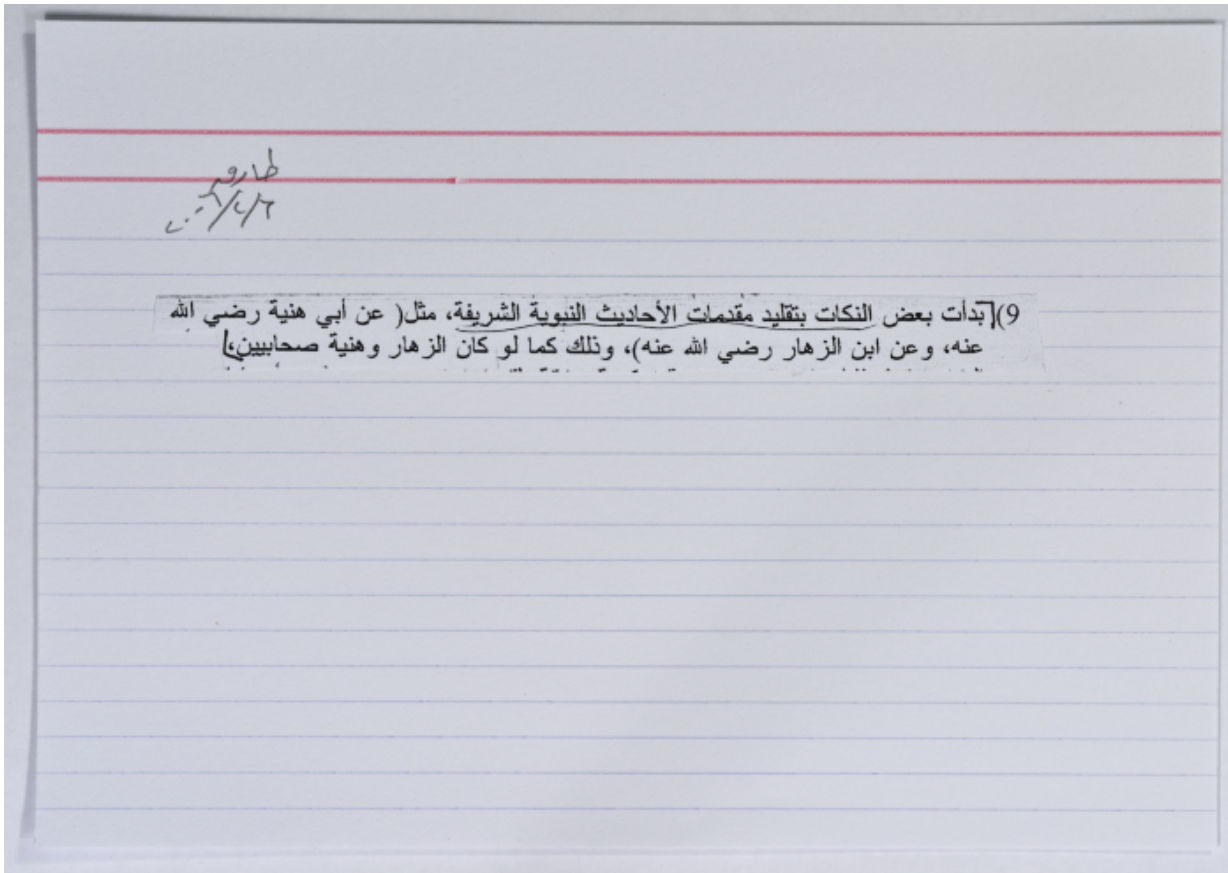 طارق
٢٠٠٦/٢/٦
9)[بدأت بعض النكات بتقليد مقدمات الأحاديث النبوية الشريفة، مثل( عن أبي هنية رضي الله
عنه، وعن ابن الزهار رضي الله عنه)، وذلك كما لو كان الزهار وهنية صحابيين،]